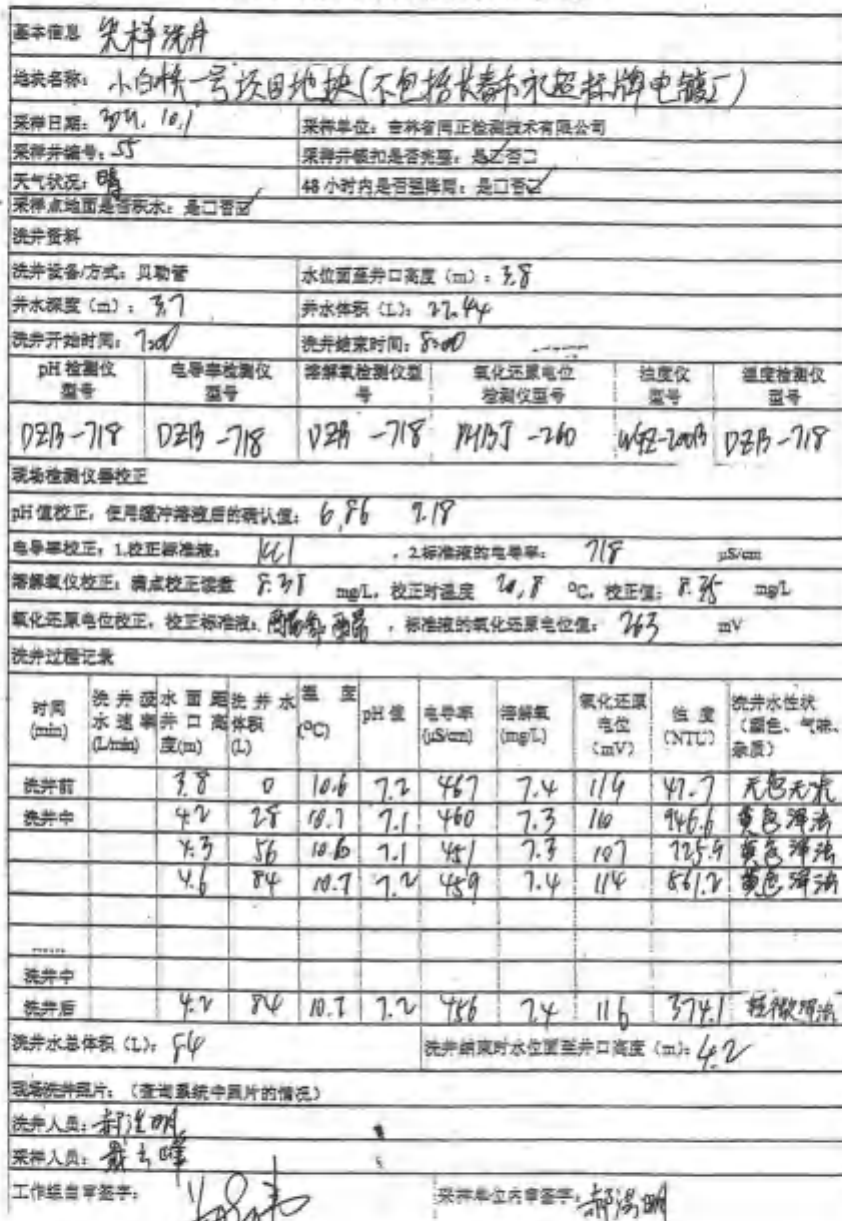 基本信息 采样洗井
地块名称: 小白桦一号项目地块(不包括长春市永超标牌电镀厂)
采样日期: 10.1 采样单位: 吉林省同正检测技术有限公司
采样井编号: S5 采样井锁扣是否完整: 是☑否□
天气状况: 晴 48 小时内是否强降雨: 是□否☑
采样点地面是否积水: 是□否☑
洗井资料
洗井设备/方式: 贝勒管 水位面至井口高度 (m): 3.8
井水深度 (m): 3.7 井水体积 (L): 27.44
洗井开始时间: 7:00 洗井结束时间: 8:00
pH 检测仪型号 电导率检测仪型号 溶解氧检测仪型号 氧化还原电位检测仪型号 浊度仪型号 温度检测仪型号
DZB-718 DZB-718 DZB-718 PHBJ-260 WGZ-200B DZB-718
现场检测仪器校正
pH 值校正, 使用缓冲溶液后的确认值: 6.86 9.18
电导率校正: 1.校正标准液: KCl , 2.标准液的电导率: 718 μS/cm
溶解氧仪校正: 满点校正读数 8.38 mg/L, 校正时温度 20.8 ℃, 校正值: 8.35 mg/L
氧化还原电位校正, 校正标准液: , 标准液的氧化还原电位值: 263 mV
洗井过程记录
时间(min) 洗井汲水速率(L/min) 水面距井口高度(m) 洗井水体积(L) 温度(℃) pH值 电导率(μS/cm) 溶解氧(mg/L) 氧化还原电位(mV) 浊度(NTU) 洗井水性状(颜色、气味、杂质)
洗井前 3.8 0 10.6 7.2 467 7.4 119 47.7 无色无味
洗井中 4.2 28 10.7 7.1 460 7.3 110 946.6 黄色浑浊
4.3 56 10.6 7.1 451 7.3 107 725.9 黄色浑浊
4.6 84 10.7 7.2 459 7.4 114 561.2 黄色浑浊
……
洗井中
洗井后 4.2 84 10.7 7.2 456 7.4 116 374.1 轻微浑浊
洗井水总体积 (L): 84 洗井结束时水位面至井口高度 (m): 4.2
现场洗井照片: (查询系统中照片的情况)
洗井人员: 郝
采样人员: 戴
工作组自审签字: 采样单位内审签字: 郝